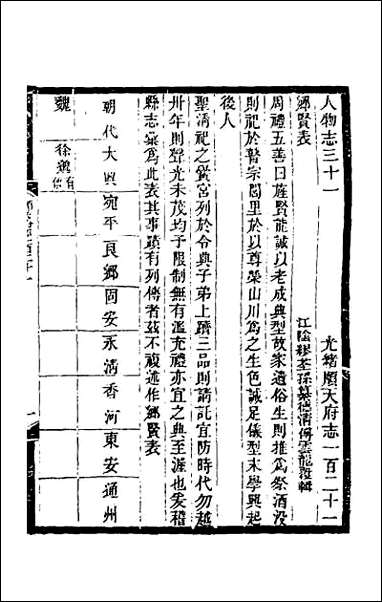 人物志三十一　光緒順天府志一百二十一
鄉賢表　江陰繆荃孫纂德清傅雲龍覆輯
周禮五善曰旌賢能誠以老成典型故家遺俗生則推爲祭酒沒
則祀於瞽宗閭里於以尊榮山川爲之生色誠足儀型末學興起
後人
聖清祀之黌宮列於令典子弟上躋三品則請託宜防時代勿越
卅年則聲光未茂均予限制無有濫充禮亦宜之典至渥也爰稽
縣志彙爲此表其事蹟有列傳者茲不複述作鄉賢表
朝代　大興　宛平　良鄉　固安　永清　香河　東安　通州
魏　徐邈有傳